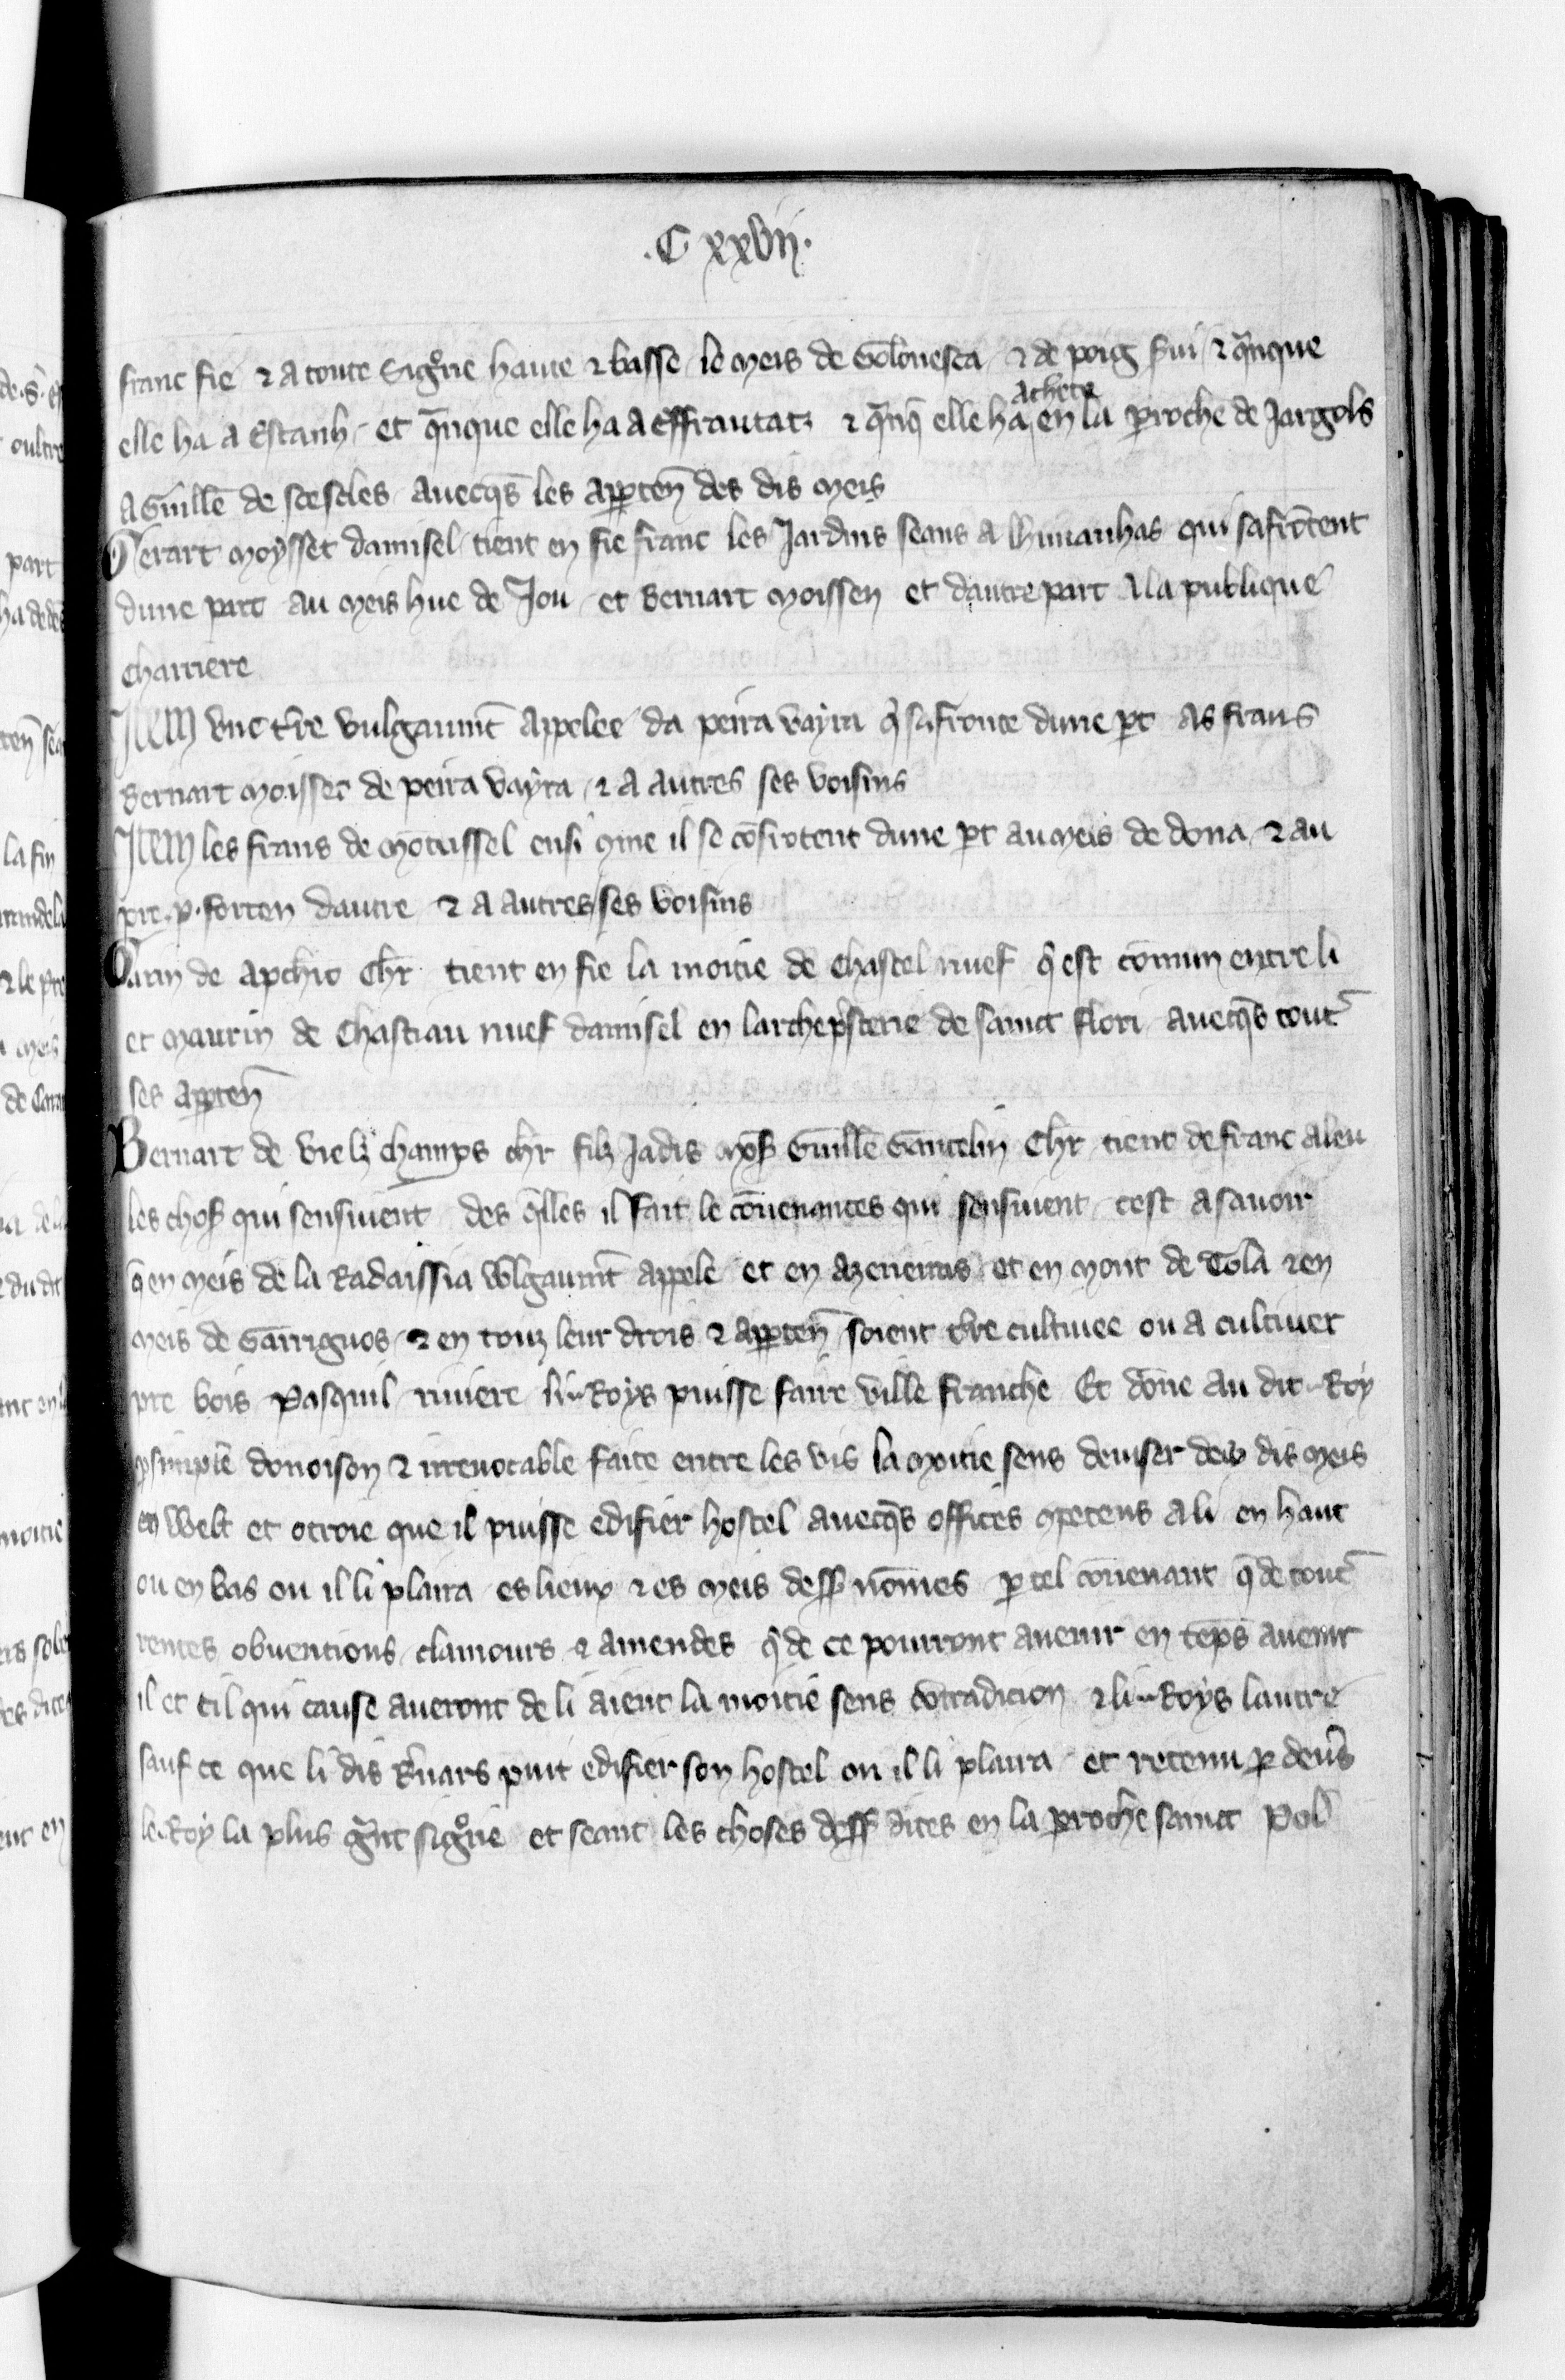 .C xxvij.
franc fie ⁊ a toute Sigᵒrie haute ⁊ basse le meis de Golouesca ⁊ de poig ⁊ qⁿque
elle ha a Estanh et qⁿque elle ha a Effrautatz ⁊ qⁿq̄ elle ha achete en la ꝑroche de Jargols
a Guillē de scescles auecqs̄ les aꝑten̄ des dis meis
Gerart moysset damisel tient en fie franc les Jardins seans a qui safrōtent
dune part au meis hue de Jou et bernart moissen et dautre part a la publique
charriere
Item vne t̄re vulgaumt̄ appelee da peira vayra q̄ safronte dune ꝑt as frans
bernart moisset de peira vayra ⁊ a autres ses voisins
Item les frans de mōtussel ensi ꝯme il se cōfrōtent dune ꝑt au meis de dona ⁊ au
pre .p. forten dautre ⁊ a autres ses voisins
Garin de apchio chr̄ tient en fie la moitie de Chastel nuef q̄ est cōmun entre li
et maurin de Chastiau nuef damisel en larchep̄sterie de sainct flori auecqs̄ tout̄
ses aꝑten̄
Bernart de vielz champs chr̄ filz Jadis Guillē Gancelin Chr̄ tient de franc aleu
les chos̄ qui sensiuent des q̄lles il fait le cōuenances qui sensiuent cest asauoir
q̄ en meis de la Radaissia vulgaumt̄ appele et en azeneiras et en mont de Cola ⁊ en
meis de Garriguos ⁊ en touz leur drois ⁊ aꝑten̄ soient t̄re cultiuee ou a cultiuer
pre bois Pasquil riuiere li Roys puisse faire ville franche Et dōne au dit Roy
ꝑ simple donoison ⁊ irreuocable faite entre les vis la moitie sens deuiser des dis meis
en et otroie que il puisse edifier hostel auecqs̄ offices ꝯpetens a li en haut
ou en bas ou il li plaira es lieux ⁊ es meis dess̄ nōmes ꝑ tel cōuenant q̄ de tout̄
rentes obuentions clamours ⁊ amendes q̄ de ce pourront auenir en tēps auenir
il et cil qui cause aueront de li aient la moitie sens cōtradicion ⁊ li Roys lautre
sauf ce que li dis b̄nars puit edifier son hostel ou il li plaira et retenu ꝑ deu̾s
le Roy la plus gⁿt sigᵒrie et seant les choses dess̄ dites en la ꝑroche sainct Pol